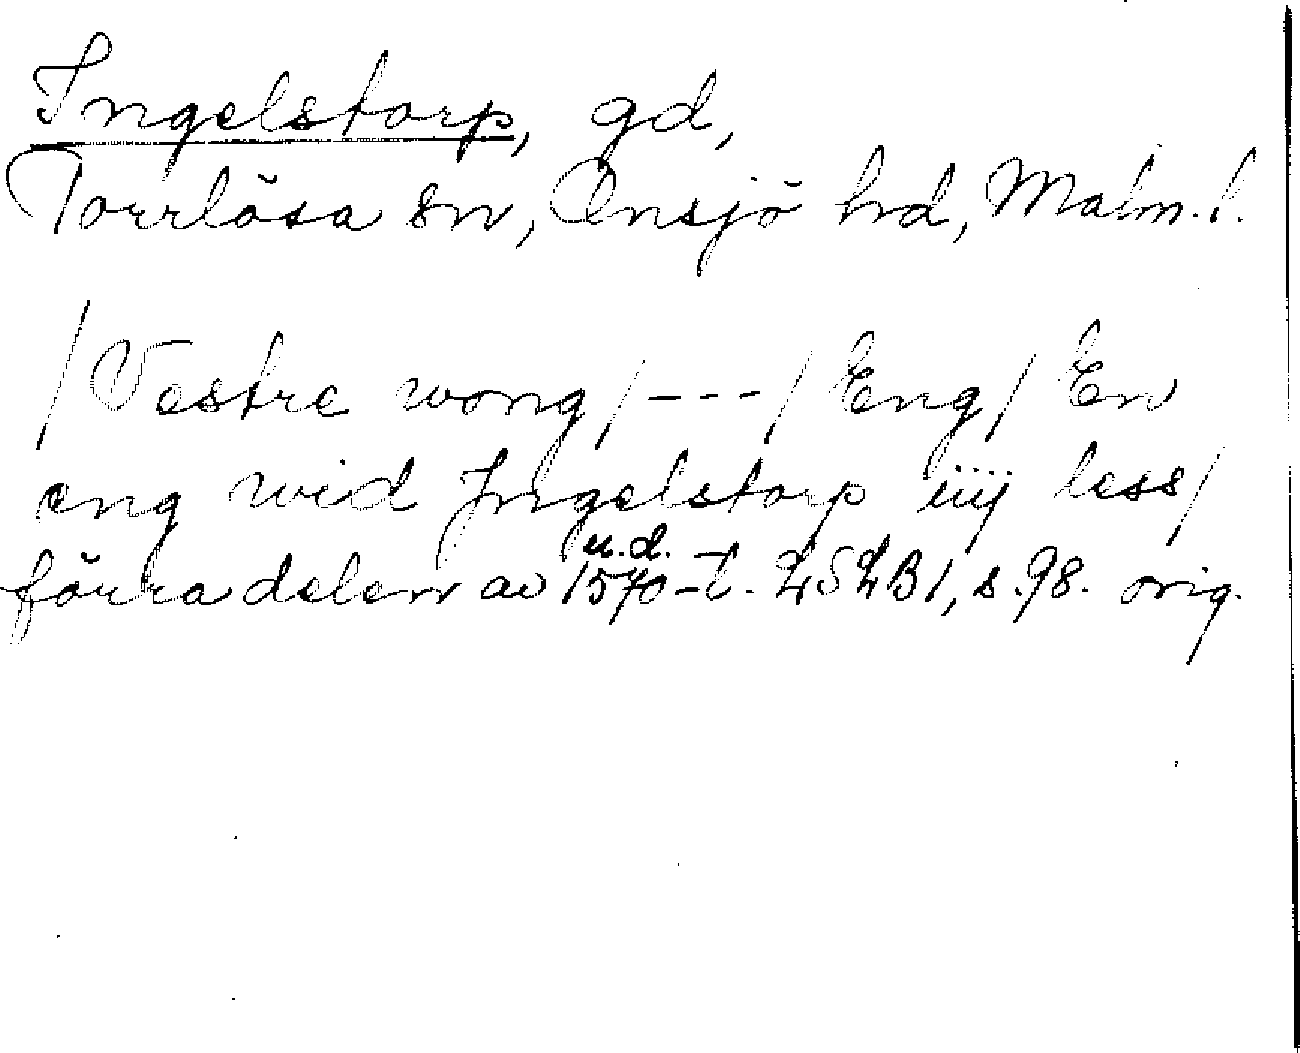 Ingelstorp, gd,
Torrlösa sn, Onsjö hd, Malm. l.
/Vestre wong/---/Eng/ En
eng wid Jngelstorp iiij less/
förra delen av 1570-t. u.d. LSLB1, s. 98. orig.